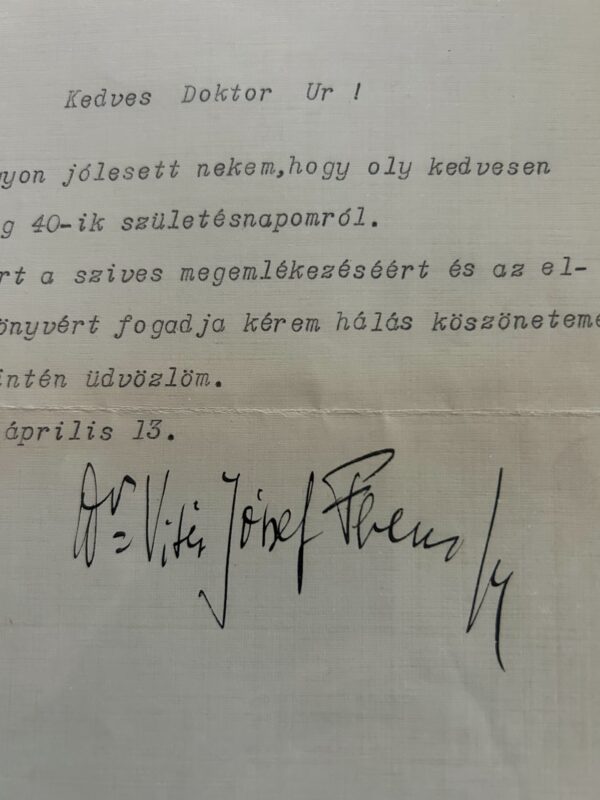 Kedves Doktor Ur !
yon jólesett nekem,hogy oly kedvesen
g 40-ik születésnapomról.
rt a szives megemlékezéséért és az el-
önyvért fogadja kérem hálás köszöneteme
intén üdvözlöm.
április 13.
Dr Vitéz József Ferenc